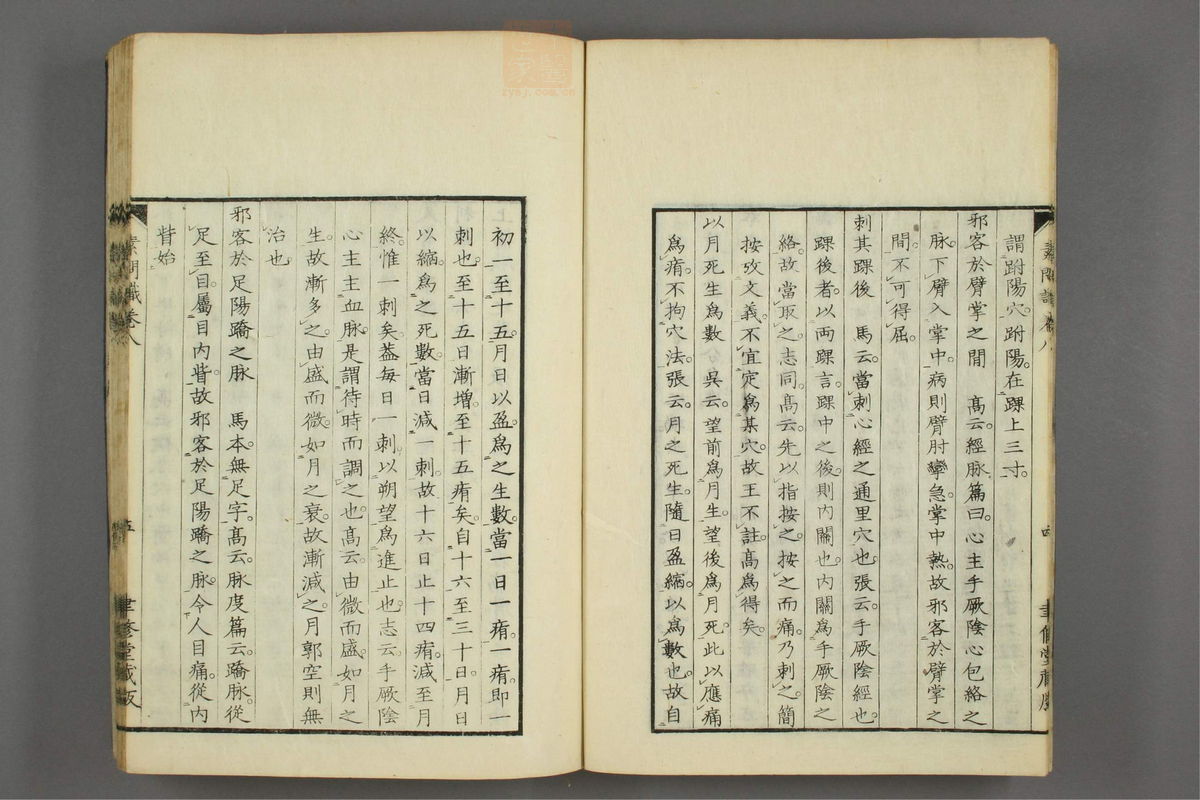 素問識卷八
四
聿修堂藏版
謂跗陽穴。跗陽。在踝上三寸。
邪客於臂掌之間　高云。經脉篇曰。心主手厥陰心包絡之
脉。下臂入掌中。病則臂肘攣急。掌中熱。故邪客於臂掌之
間。不可得屈。
刺其踝後　馬云。當刺心經之通里穴也。張云。手厥陰經也。
踝後者。以兩踝言。踝中之後。則內關也。內關爲手厥陰之
絡。故當取之。志同。高云。先以指按之。按之而痛。乃刺之。簡
按攷文義。不宜定爲某穴。故王不註。高爲得矣。
以月死生爲數　吳云。望前爲月生。望後爲月死。此以應痛
爲痏。不拘穴法。張云。月之死生。隨日盈縮。以爲數也。故自
初一至十五。月日以盈。爲之生數。當一日一痏。一痏。即一
刺也。至十五日漸增。至十五痏矣。自十六至三十日。月日
以縮。爲之死數。當日減一刺。故十六日止十四痏。減至月
終。惟一刺矣。葢每日一刺。以朔望爲進止也。志云。手厥陰
心主主血脉。是謂待時而調之也。高云。由微而盛。如月之
生。故漸多之。由盛而微。如月之衰。故漸減之。月郭空則無
治也。
邪客於足陽蹻之脉　馬本無足字。高云。脉度篇云。蹻脉。從
足至目。屬目內眥。故邪客於足陽蹻之脉。令人目痛。從內
眥始
素問識卷八
五
聿修堂藏版